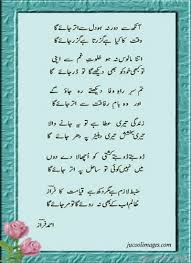 آنکھ سے دور نہ ہو دل سے اتر جائے گا
وقت کا کیا ہے گزرتا ہے گزر جائے گا
اتنا مانوس نہ ہو خلوتِ غم سے اپنی
تو کبھی خود کو بھی دیکھے گا تو ڈر جائے گا
تم سرِ راہِ وفا دیکھتے رہ جاؤ گے
اور وہ بامِ رفاقت سے اتر جائے گا
زندگی تیری عطا ہے تو یہ جانے والا
تیری بخشش تیری دہلیز پہ دھر جائے گا
ڈوبتے ڈوبتے کشتی کو اچھالا دے دوں
میں نہیں کوئی تو ساحل پہ اتر جائے گا
ضبط لازم ہے مگر دکھ ہے قیامت کا فراز
ظالم اب کے بھی نہ روئے گا تو مر جائے گا
احمد فراز
jucoolimages.com